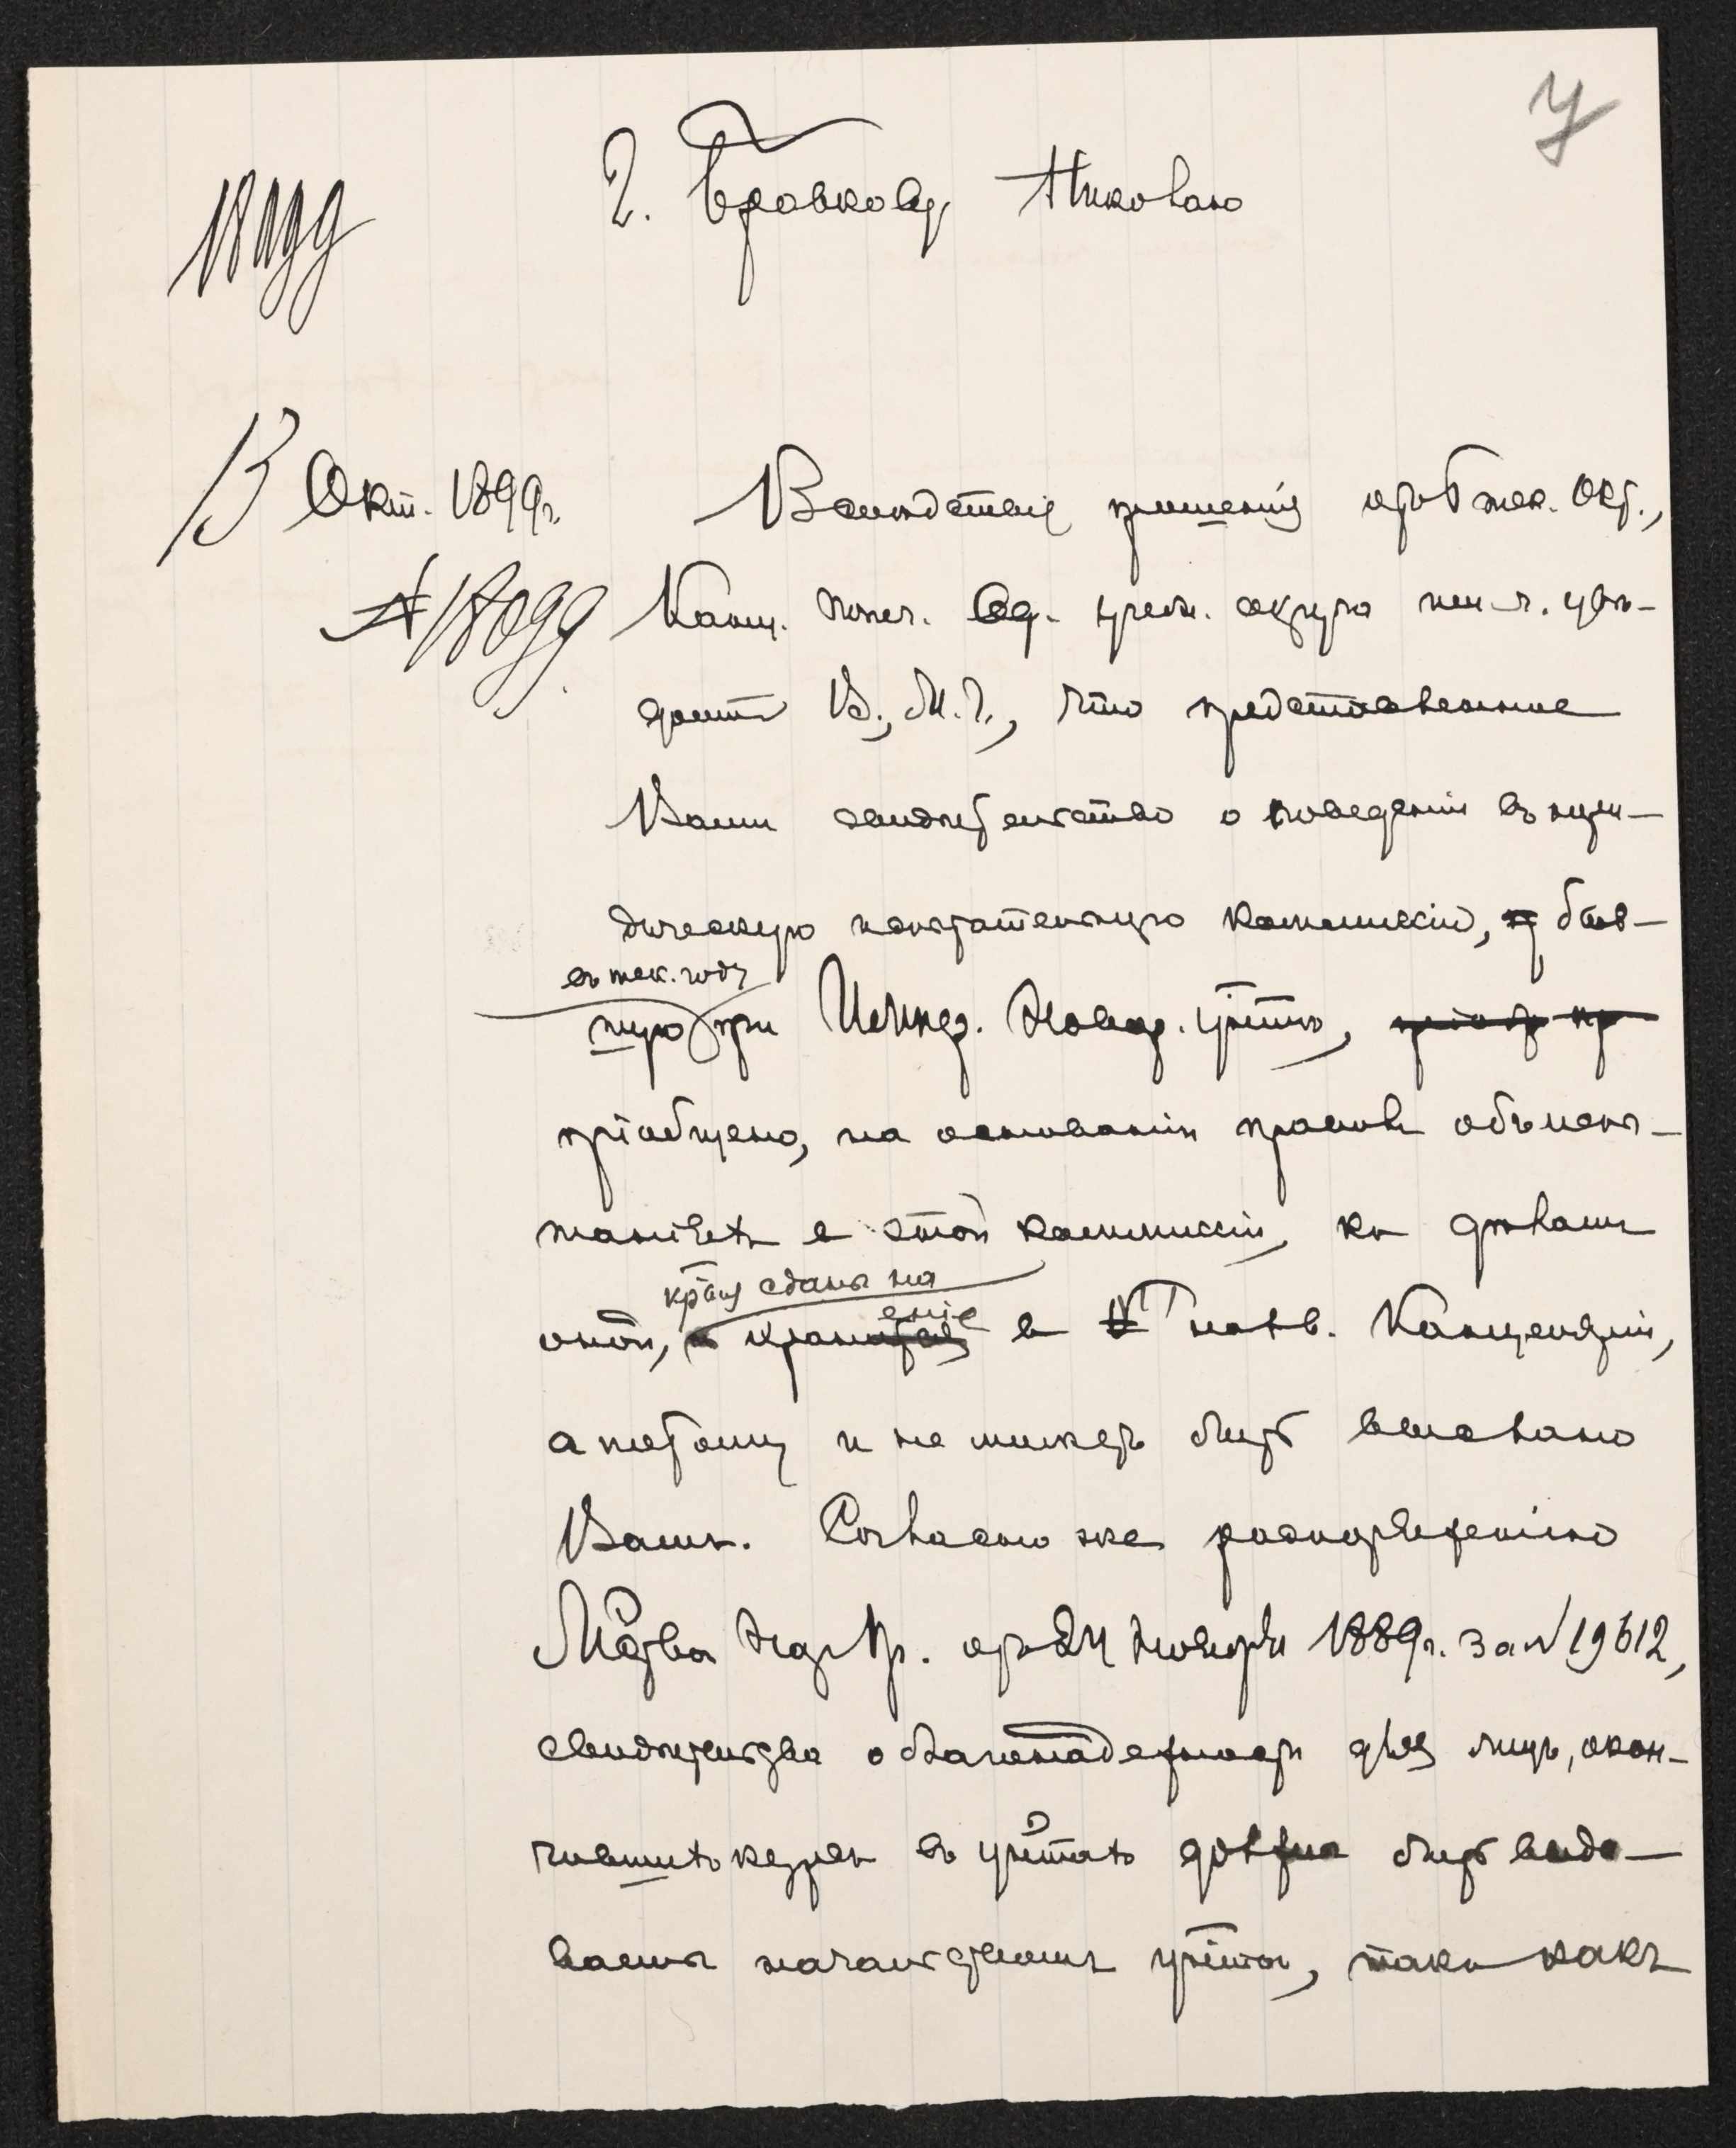 У
Г. Бровкову Николаю
13 Окт. 1899 г.
№ 18099
Вслѣдствіе прошенія отъ 5 тек. Окт.,
Канц. Попеч. Од. учебн. округа увѣ-
домить В., М. Г., что представленное
Вами свидѣтельство о поведеніи въ юри-
дическую испытательную коммиссію, быв-
въ тек. году
шую при Импер. Новор. ун-тѣ,
пріобщено, на основаніи правилъ объ испы-
таніяхъ в этой коммиссіи, къ дѣламъ
сданы на
оной, храненіе в Канцеляріи,
а потому и не можетъ быть выслано
Вамъ. Согласно же распоряженію
М-ства Нар. Пр. отъ 24 Ноября 1889 г. за № 19612,
свидѣтельства о благонадежности для лицъ, окон-
чившихъ курсъ въ ун-тахъ должны быть выда-
ваемы начальствомъ ун-та, такъ какъ